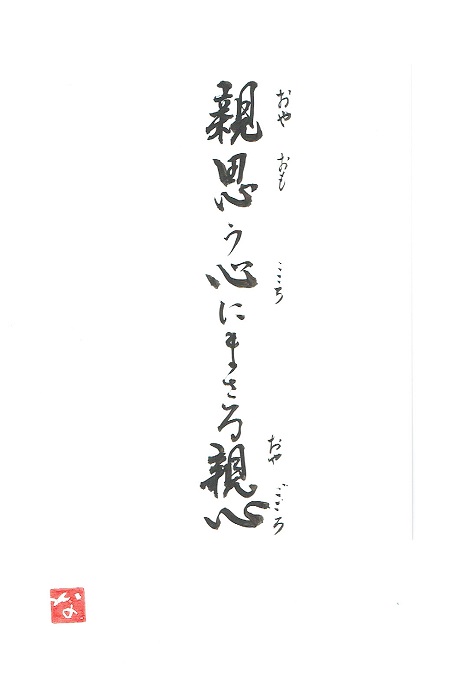 親思う心にまさる親心
おや おも こころ おや ごころ
な